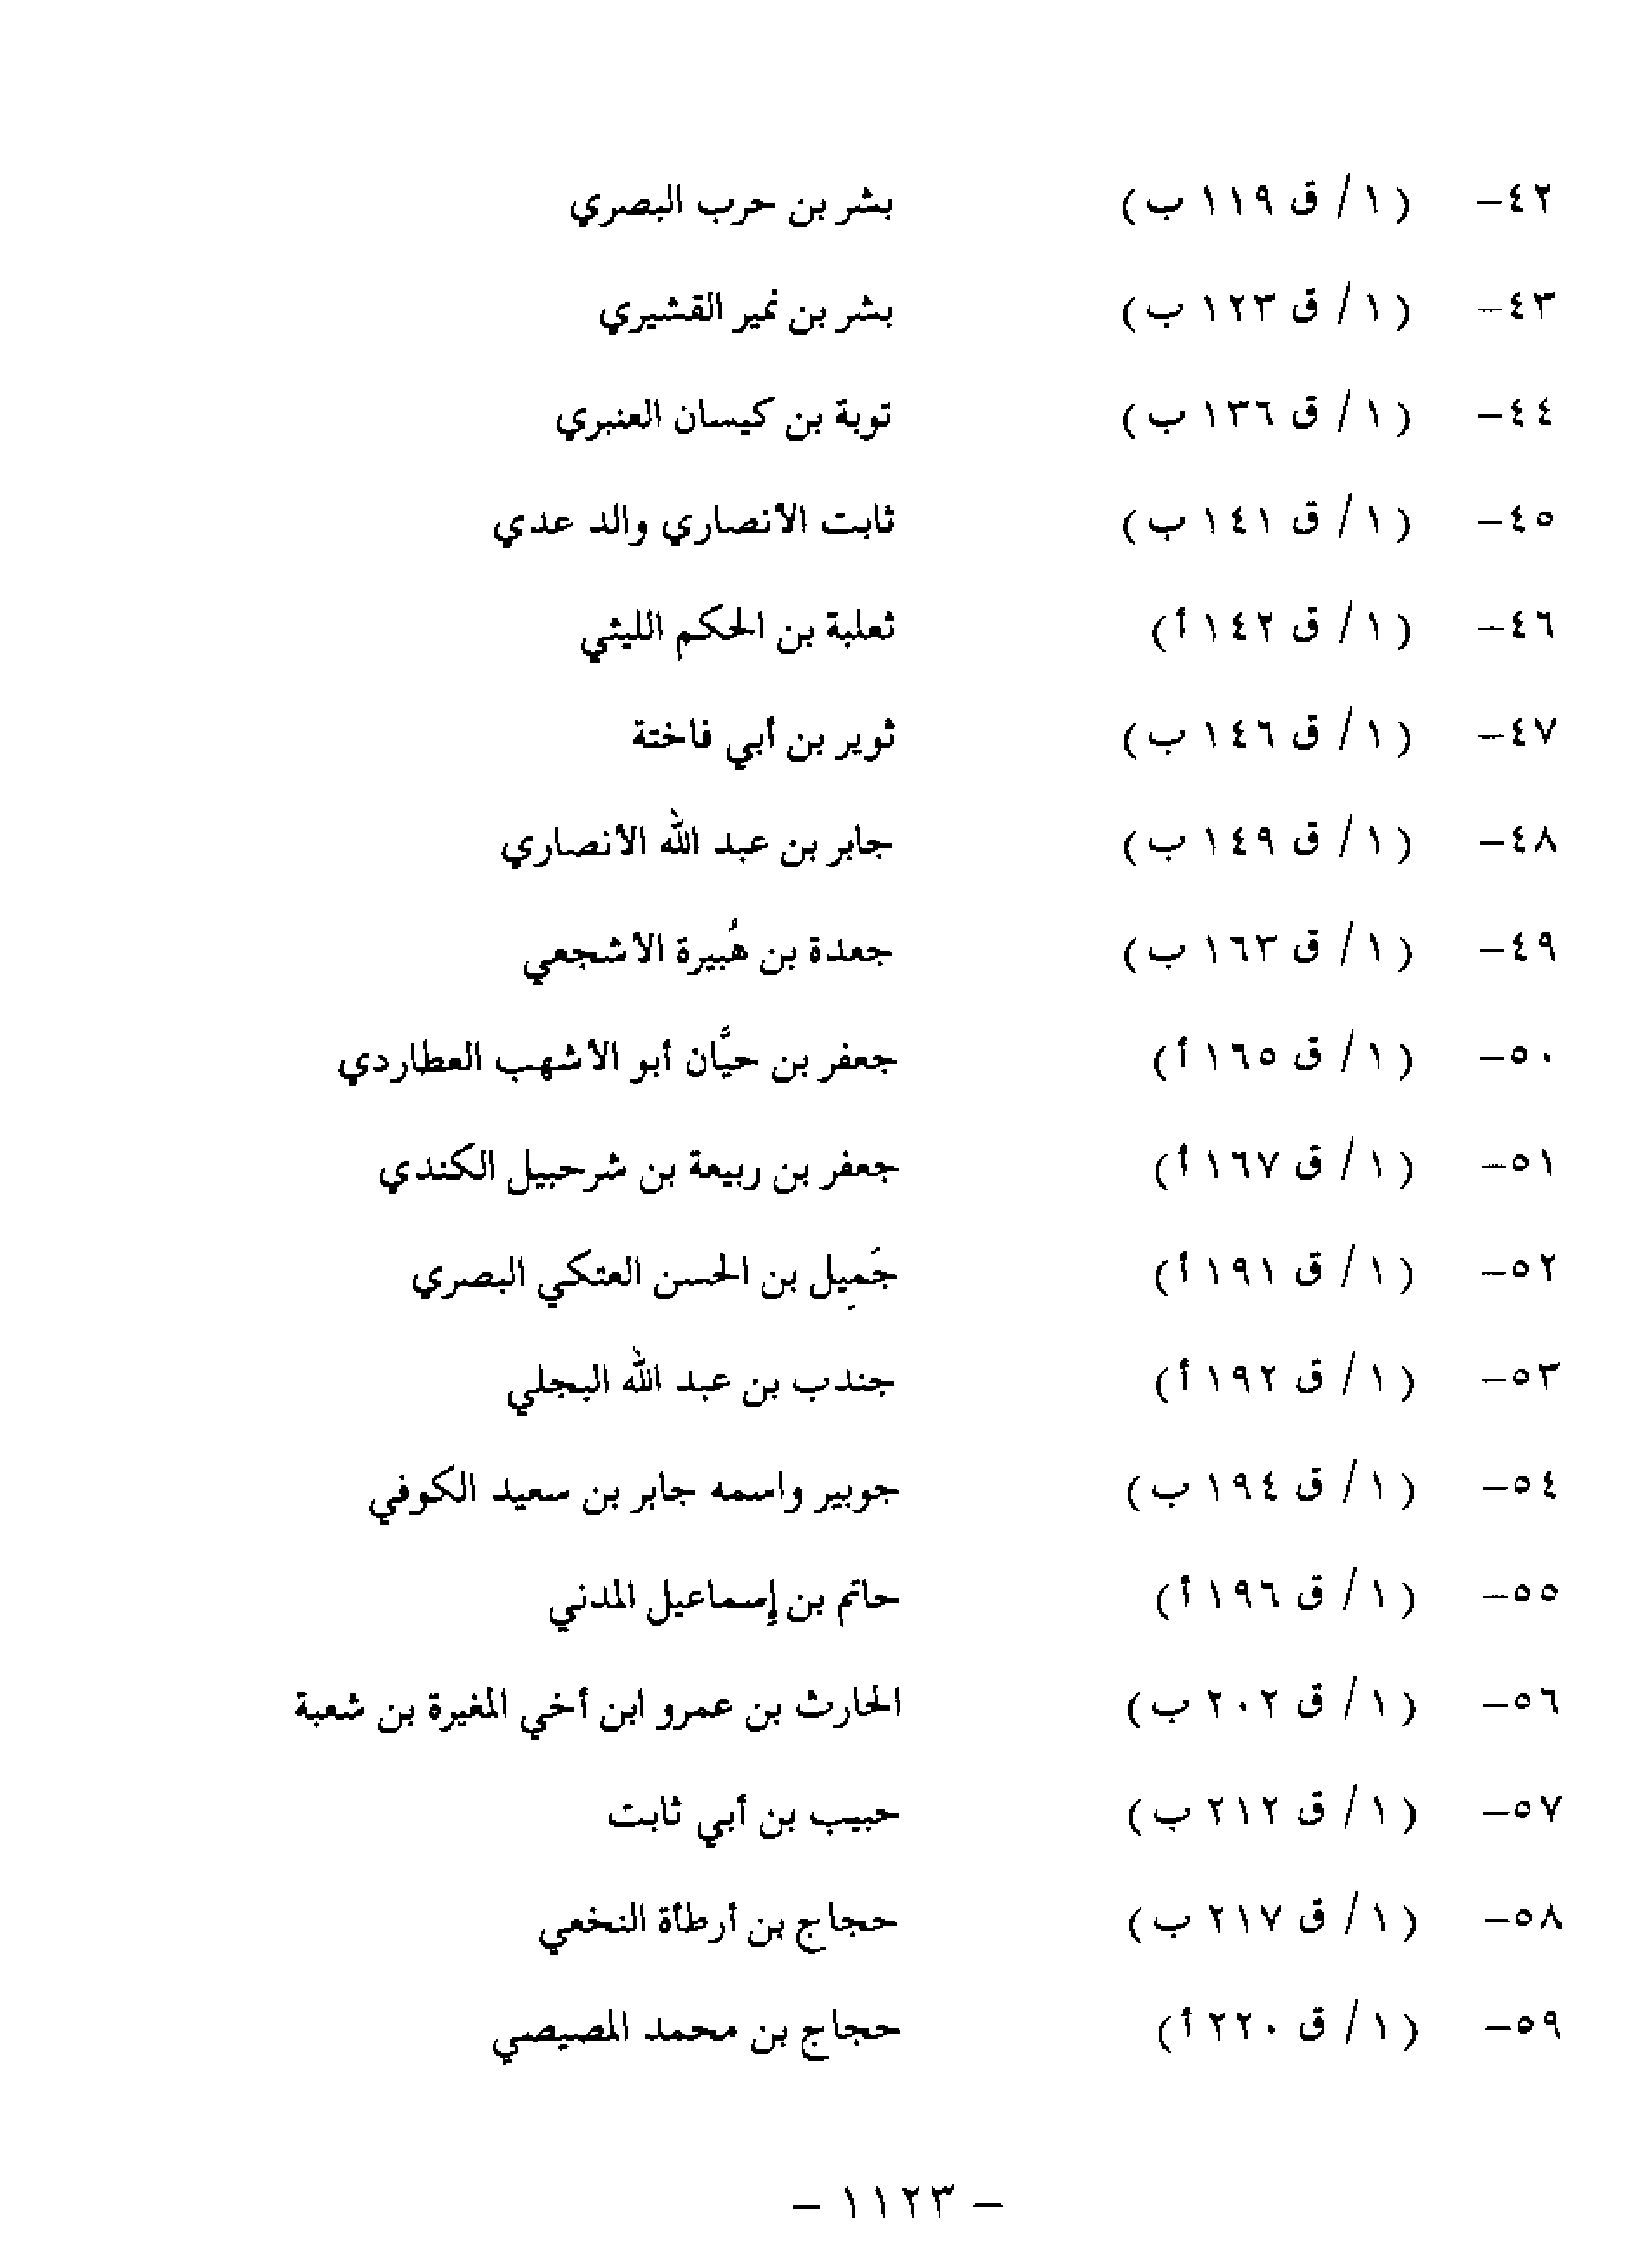 ٤٢- (١/ ق ١١٩ ب) بشر بن حرب البصري
٤٣- (١/ ق ١٢٣ ب) بشر بن نمير القشيري
٤٤- (١/ ق ١٣٦ ب) توبة بن كيسان العنبري
٤٥- (١/ ق ١٤١ ب) ثابت الأنصاري والد عدي
٤٦- (١/ ق ١٤٢ أ) ثعلبة بن الحكم الليثي
٤٧- (١/ ق ١٤٦ ب) ثوير بن أبي فاختة
٤٨- (١/ ق ١٤٩ ب) جابر بن عبد الله الأنصاري
٤٩- (١/ ق ١٦٣ ب) جعدة بن هُبيرة الأشجعي
٥٠- (١/ ق ١٦٥ أ) جعفر بن حيَّان أبو الأشهب العطاردي
٥١- (١/ ق ١٦٧ أ) جعفر بن ربيعة بن شرحبيل الكندي
٥٢- (١/ ق ١٩١ أ) جَمِيل بن الحسن العتكي البصري
٥٣- (١/ ق ١٩٢ أ) جندب بن عبد الله البجلي
٥٤- (١/ ق ١٩٤ ب) جوبير واسمه جابر بن سعيد الكوفي
٥٥- (١/ ق ١٩٦ أ) حاتم بن إسماعيل المدني
٥٦- (١/ ق ٢٠٢ ب) الحارث بن عمرو ابن أخي المغيرة بن شعبة
٥٧- (١/ ق ٢١٢ ب) حبيب بن أبي ثابت
٥٨- (١/ ق ٢١٧ ب) حجاج بن أرطأة النخعي
٥٩- (١/ ق ٢٢٠ أ) حجاج بن محمد المصيصي
- ١١٢٣ -